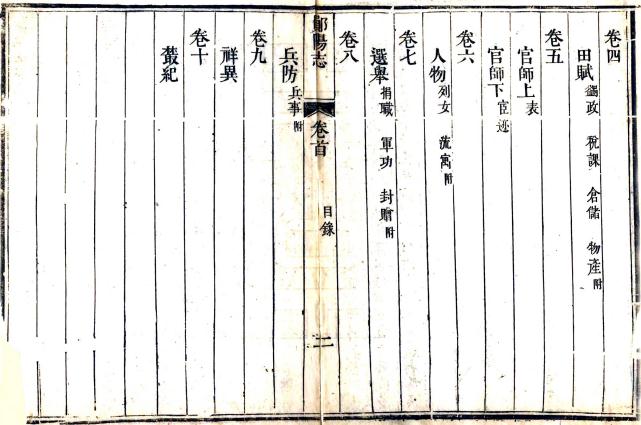 卷四
田賦 蠲政 稅課 倉儲 物產附
卷五
官師上 表
官師下 宦迹
卷六
人物 列女 流寓附
卷七
選舉 捐職 軍功 封贈附
卷八
鄖陽志 卷首 目錄 二
兵防 兵事附
卷九
祥異
卷十
叢紀